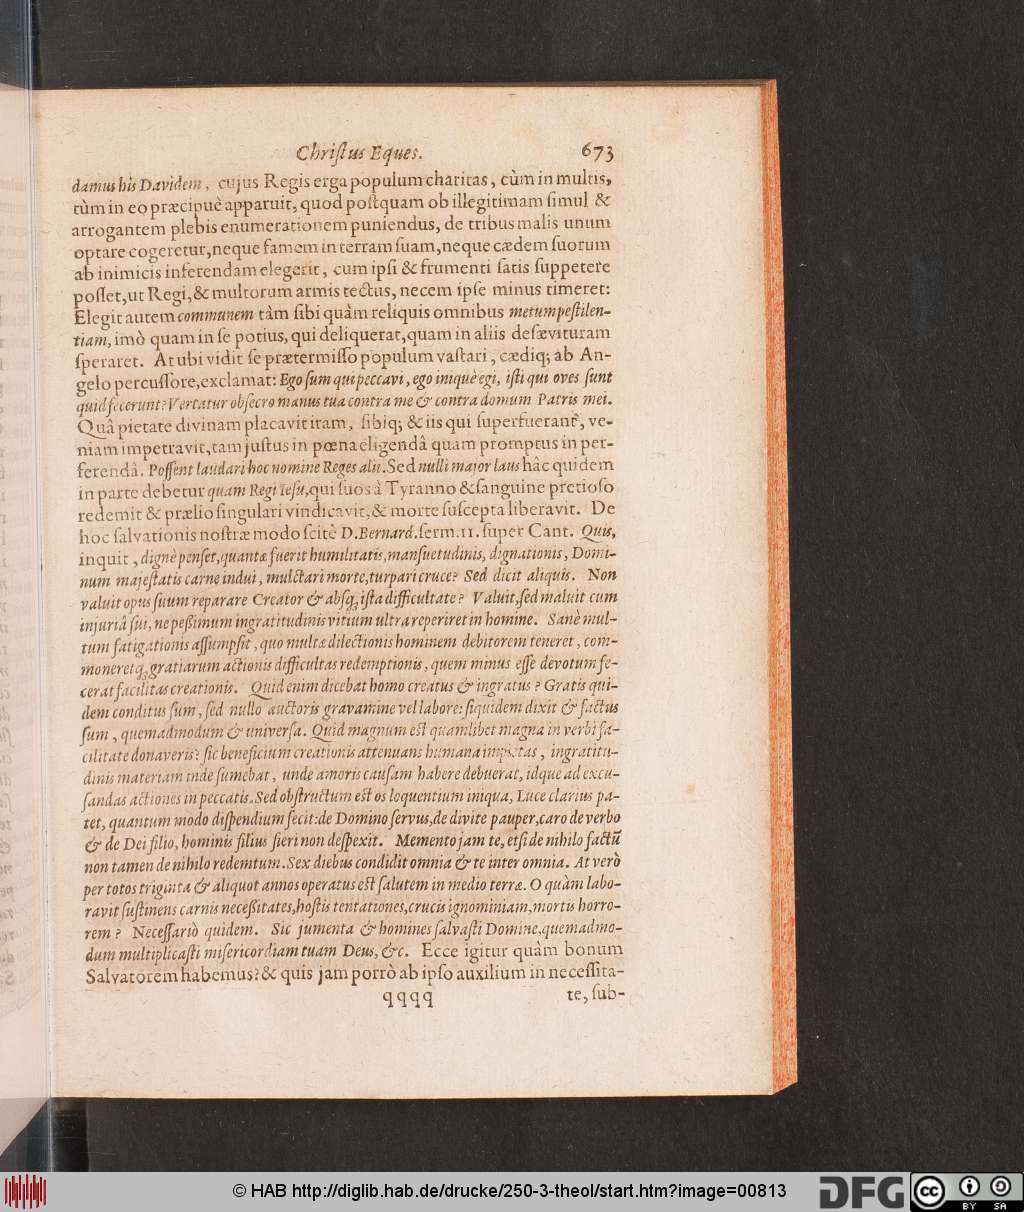 Christus Eques. 673
damus his Davidem, cujus Regis erga populum charitas, cùm in multis,
tùm in eo præcipuè apparuit, quod postquam ob illegitimam simul &
arrogantem plebis enumerationem puniendus, de tribus malis unum
optare cogeretur, neque famem in terram suam, neque cædem suorum
ab inimicis inferendam elegerit, cum ipsi & frumenti satis suppetere
posset, ut Regi, & multorum armis tectus, necem ipse minus timeret:
Elegit autem communem tàm sibi quàm reliquis omnibus metum pestilen-
tiam, imò quam in se potius, qui deliquerat, quam in aliis desævituram
speraret. At ubi vidit se prætermisso populum vastari, cædiq; ab An-
gelo percussore, exclamat: Ego sum qui peccavi, ego iniquè egi, isti qui oves sunt
quid fecerunt? Vertatur obsecro manus tua contra me & contra domum Patris mei.
Quâ pietate divinam placavit iram, sibiq; & iis qui superfuerant, ve-
niam impetravit, tam justus in pœna eligendâ quam promptus in per-
ferendâ. Possent laudari hoc nomine Reges alii. Sed nulli major laus hâc quidem
in parte debetur quam Regi Iesu, qui suos à Tyranno & sanguine pretioso
redemit & prælio singulari vindicavit, & morte suscepta liberavit. De
hoc salvationis nostræ modo scitè D. Bernard. serm. 11. super Cant. Quis,
inquit, dignè penset, quantæ fuerit humilitatis, mansuetudinis, dignationis, Domi-
num majestatis carne indui, mulctari morte, turpari cruce? Sed dicit aliquis. Non
valuit opus suum reparare Creator & absq; ista difficultate? Valuit, sed maluit cum
injuriâ sui, ne peßimum ingratitudinis vitium ultra reperiret in homine. Sanè mul-
tum fatigationis assumpsit, quo multæ dilectionis hominem debitorem teneret, com-
moneretq; gratiarum actionis difficultas redemptionis, quem minus esse devotum fe-
cerat facilitas creationis. Quid enim dicebat homo creatus & ingratus? Gratis qui-
dem conditus sum, sed nullo auctoris gravamine vel labore: siquidem dixit & factus
sum, quemadmodum & universa. Quid magnum est quamlibet magna in verbi fa-
cilitate donaveris? sic beneficium creationis attenuans humana impietas, ingratitu-
dinis materiam inde sumebat, unde amoris causam habere debuerat, idque ad excu-
sandas actiones in peccatis. Sed obstructum est os loquentium iniqua, Luce clarius pa-
tet, quantum modo dispendium fecit: de Domino servus, de divite pauper, caro de verbo
& de Dei filio, hominis filius fieri non despexit. Memento jam te, etsi de nihilo factū
non tamen de nihilo redemtum. Sex diebus condidit omnia & te inter omnia. At verò
per totos triginta & aliquot annos operatus est salutem in medio terræ. O quàm labo-
ravit sustinens carnis neceßitates, hostis tentationes, crucis ignominiam, mortis horro-
rem? Necessariò quidem. Sic jumenta & homines salvasti Domine, quemadmo-
dum multiplicasti misericordiam tuam Deus, &c. Ecce igitur quàm bonum
Salvatorem habemus? & quis jam porrò ab ipso auxilium in necessita-
qqqq te, sub-
© HAB http://diglib.hab.de/drucke/250-3-theol/start.htm?image=00813
DFG cc BY SA